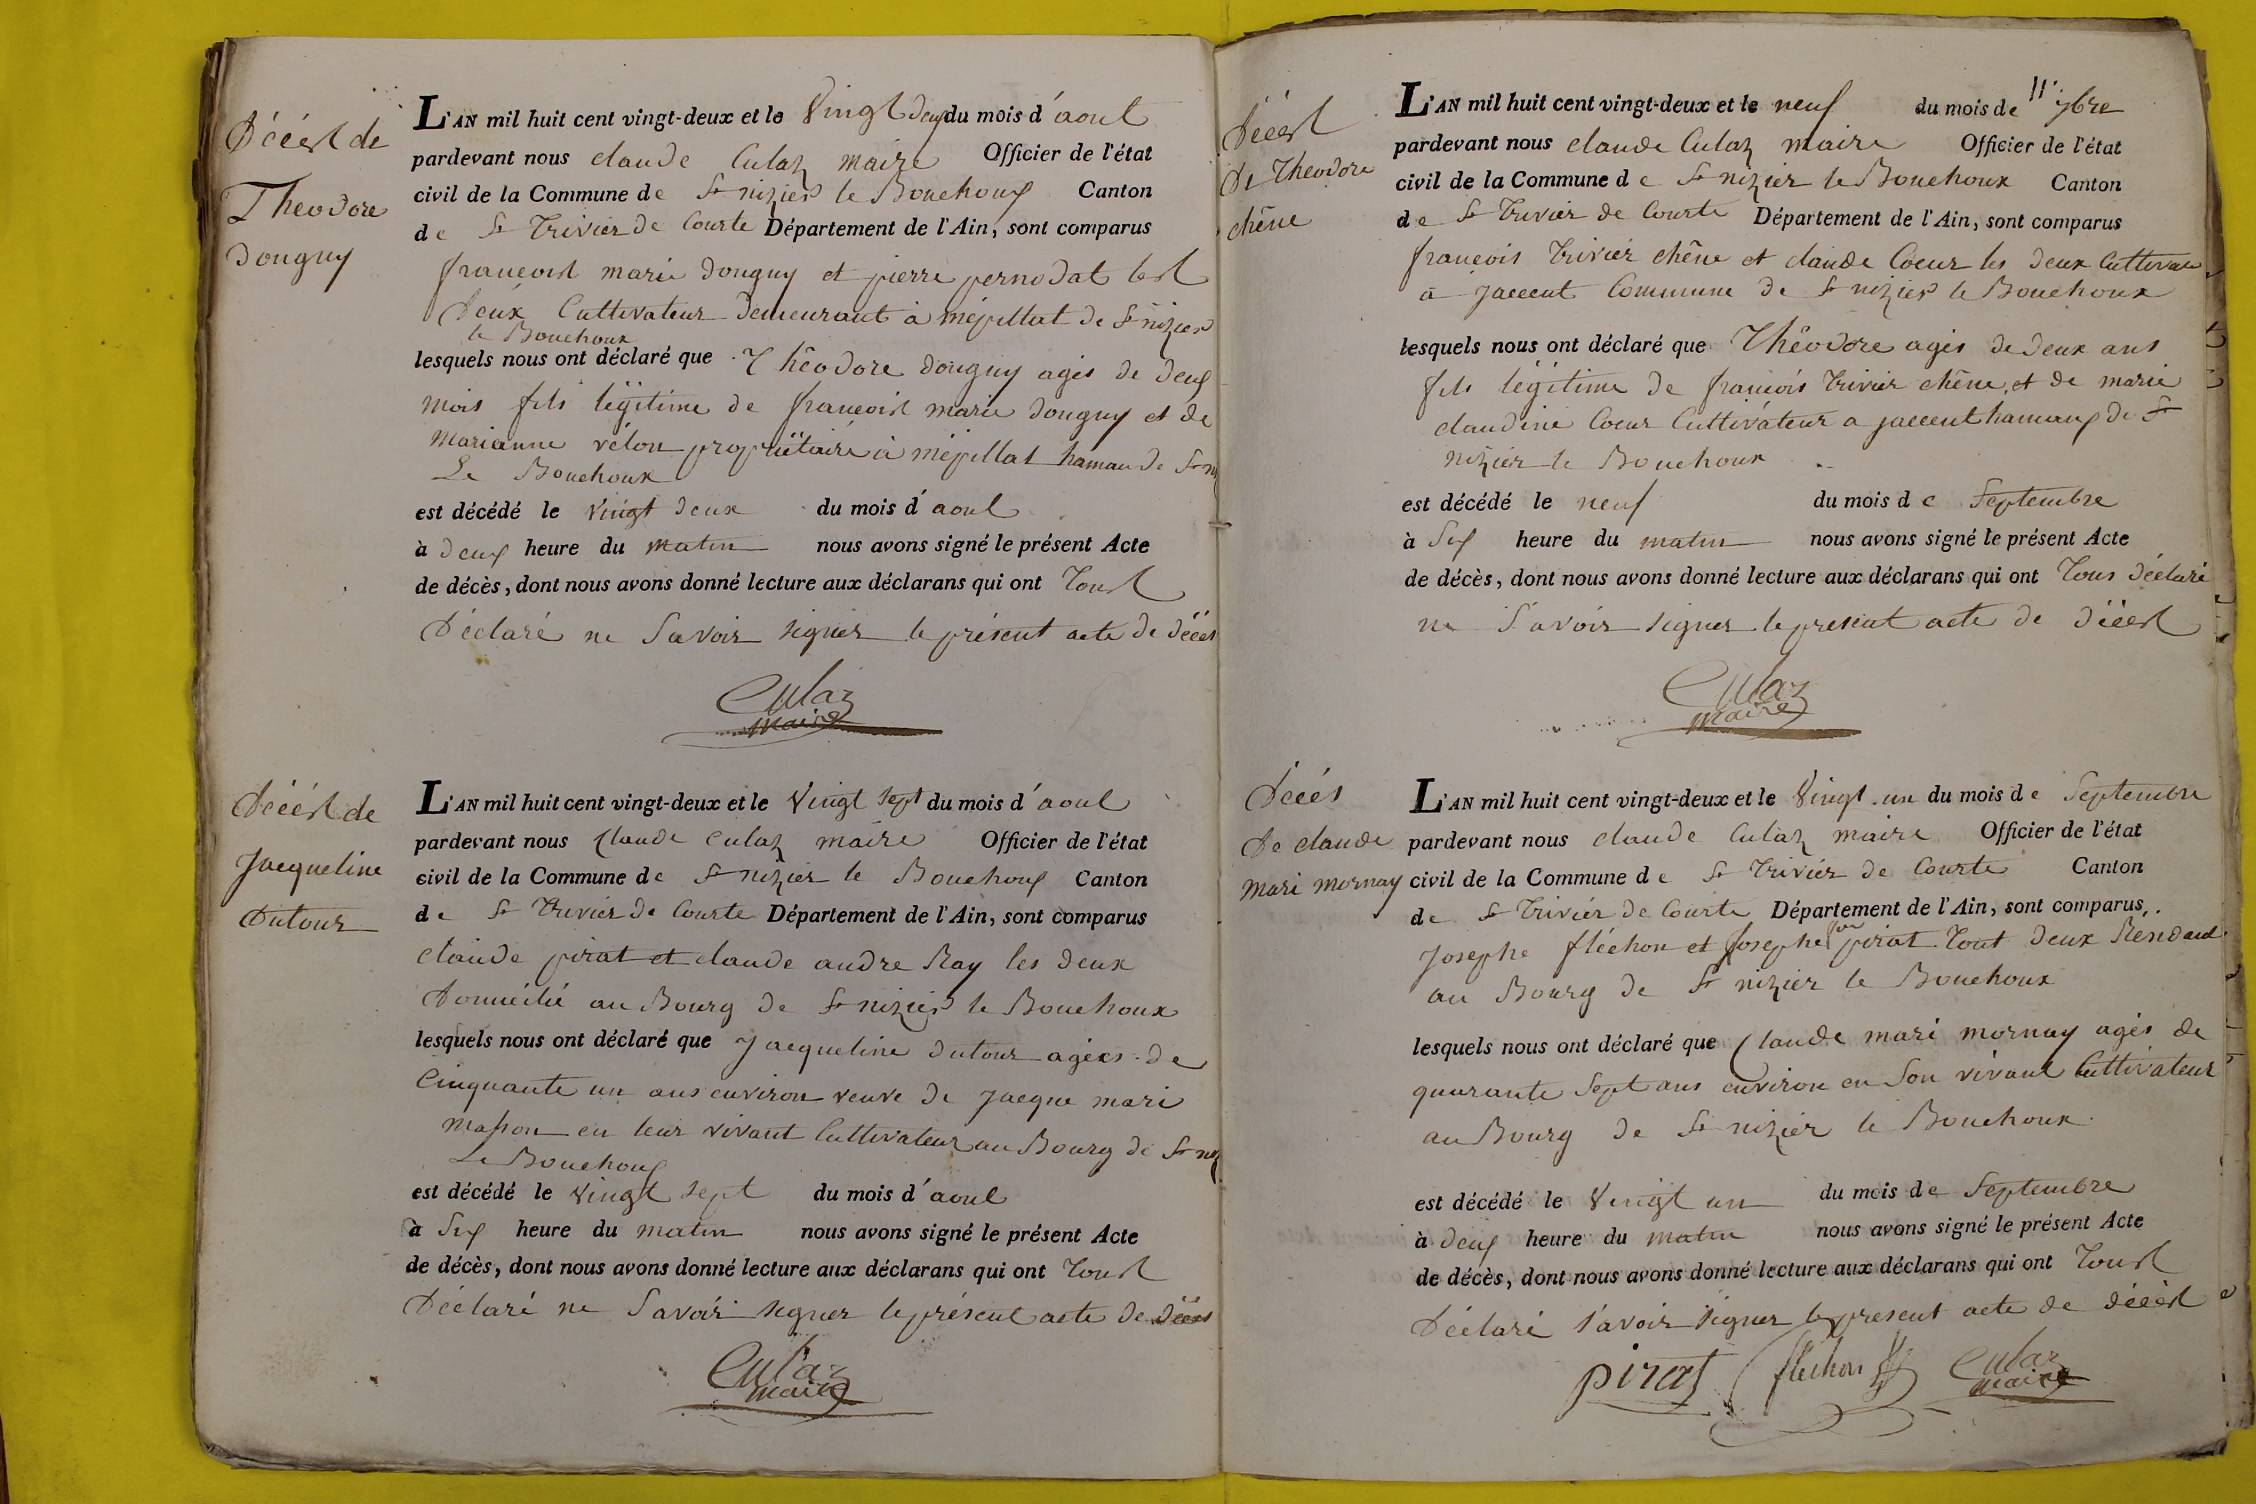 Décést de
Theodore
Donguy
L'AN mil huit cent vingt-deux et le Vingt deux du mois d'aout
pardevant nous claude Culaz maire Officier de l'état
civil de la Commune de St nizier le Bouchoux Canton
de St Trivier de Courte Département de l'Ain, sont comparus
francoist marie donguy et pierre pernodat lest
deux Cultivateur demeurant à mépillat de St nizier
le Bouchoux
lesquels nous ont déclaré que Théodore donguy agés de deux
mois fils légitime de francoist marie donguy et de
marianne vélon propriétaire à mépillat hamau de St ni
Le Bouchoux
est décédé le vingt deux du mois d'aout
à deux heure du matin nous avons signé le présent Acte
de décès, dont nous avons donné lecture aux déclarans qui ont toust
Déclaré ne Savoir signer le présent acte de décés
Culaz
maire
Décést de
Jacqueline
Dutour
L'AN mil huit cent vingt-deux et le Vingt sept du mois d'aout
pardevant nous Claude Culaz maire Officier de l'état
civil de la Commune de St nizier le Bouchoux Canton
de St Trivier de Courte Département de l'Ain, sont comparus
claude pirat et claude andre Ray les deux
Domicilié au Bourg de St nizier le Bouchoux
lesquels nous ont déclaré que Jacqueline dutour agées de
Cinquante un ans environ veuve de Jacque mari
masson en leur vivant Cultivateur au Bourg de St niz
Le Bouchoux
est décédé le vingt sept du mois d'aout
à Six heure du matin nous avons signé le présent Acte
de décès, dont nous avons donné lecture aux déclarans qui ont toust
Déclaré ne Savoir signer le présent acte de décés
Culaz
maire
Décést
De Theodore
chêne
L'AN mil huit cent vingt-deux et le neuf du mois de 7bre
pardevant nous claude Culaz maire Officier de l'état
civil de la Commune de St nizier le Bouchoux Canton
de St Trivier de Courte Département de l'Ain, sont comparus
francois Trivier chêne et claude Coeur les deux Cultivateu
a Jaccent Commune de St nizier le Bouchoux
lesquels nous ont déclaré que Théodore agés de deux ans
fils légitime de francois Trivier chêne et de marie
claudine Coeur Cultivateur a jaccent hamaux de St
nizier le Bouchoux
est décédé le neuf du mois de Septembre
à Six heure du matin nous avons signé le présent Acte
de décès, dont nous avons donné lecture aux déclarans qui ont Tous déclaré
ne Savoir signer le présent acte de décést
Culaz
maire
Décés
De claude
mari mornay
L'AN mil huit cent vingt-deux et le Vingt un du mois de Septembre
pardevant nous claude Culaz maire Officier de l'état
civil de la Commune de St Trivier de Courte Canton
de St Trivier de Courte Département de l'Ain, sont comparus
Josephe fléchon et Josephe pirat tout deux Résidand
au Bourg de St nizier le Bouchoux
lesquels nous ont déclaré que Claude mari mornay agés de
quarante Sept ans environ en Son vivant Cultivateur
au Bourg de St nizier le Bouchoux
est décédé le Vingt un du mois de Septembre
à deux heure du matin nous avons signé le présent Acte
de décès, dont nous avons donné lecture aux déclarans qui ont toust
Déclaré savoir signer le present acte de décést
pirat fléchon Culaz
maire